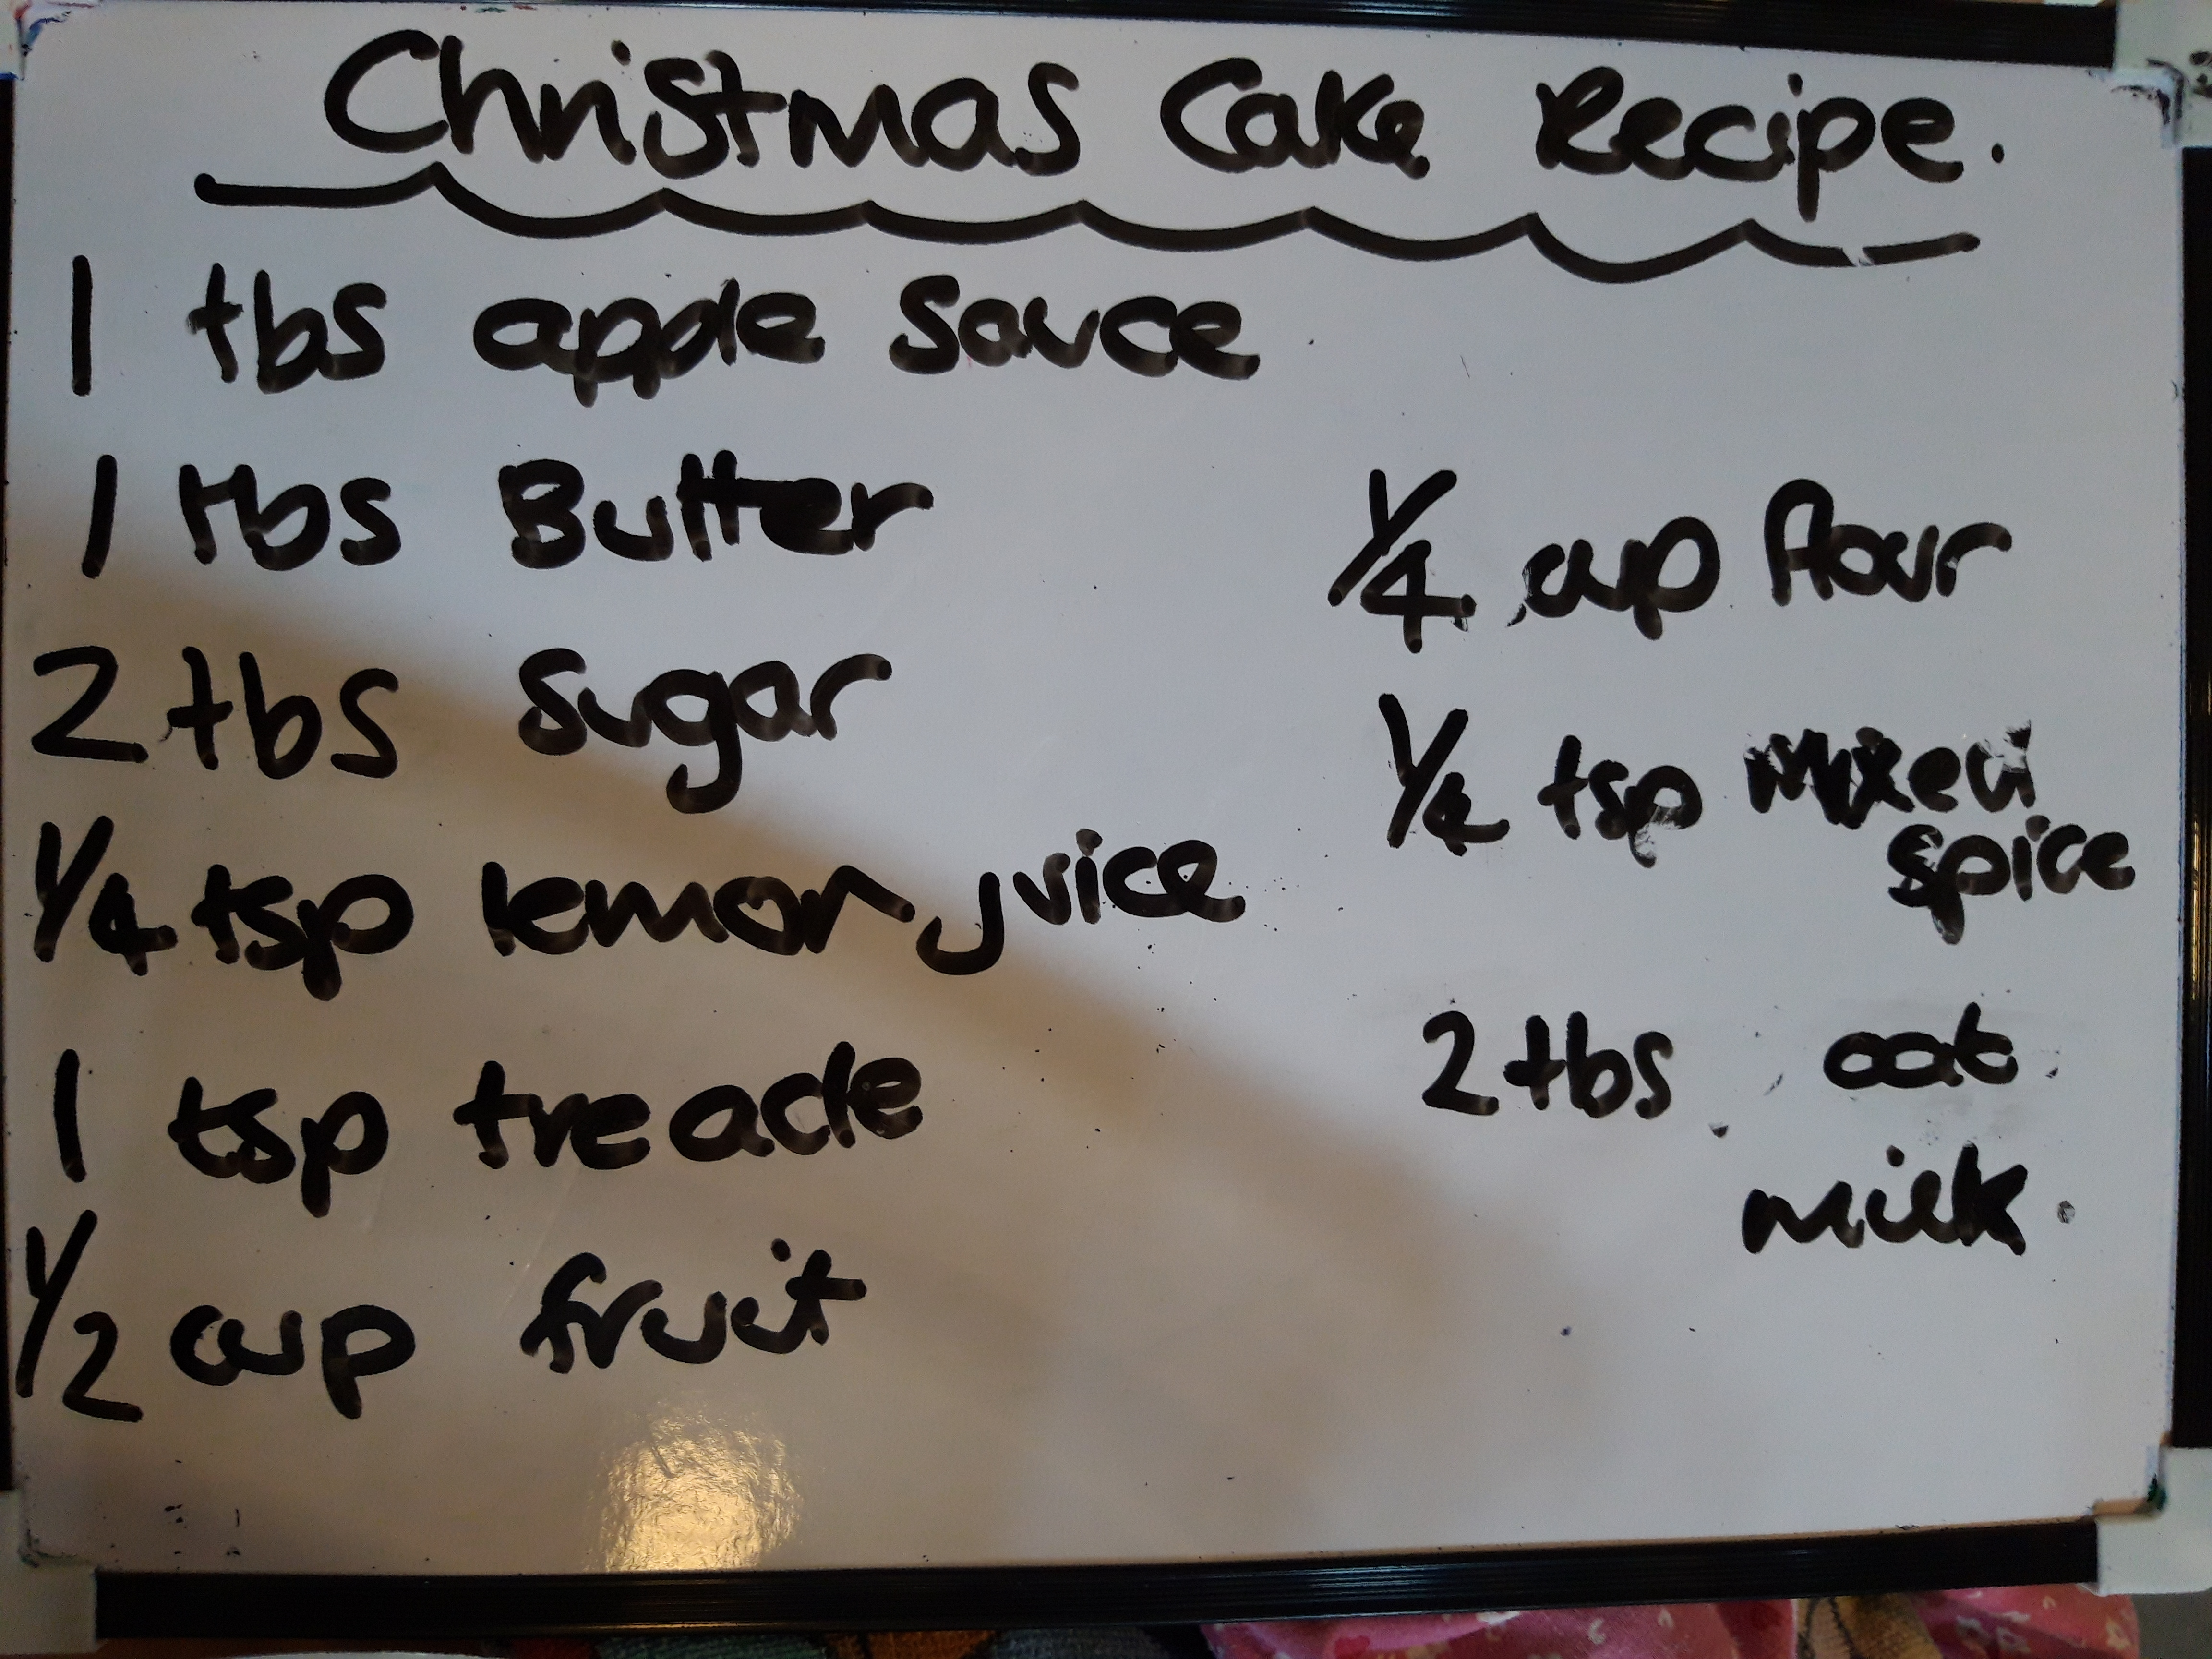 Christmas Cake Recipe.
1 tbs apple sauce
1 tbs Butter
2 tbs sugar
1/4 tsp lemon juice
1 tsp treacle
1/2 cup fruit
1/4 cup flour
1/4 tsp mixed
spice
2 tbs oat
milk.